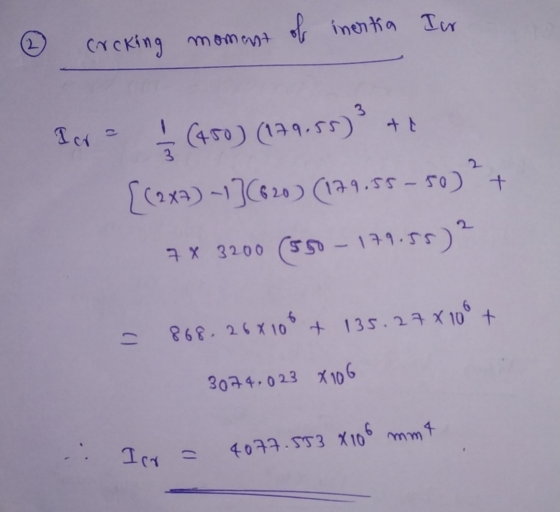 ② crcking moment of inertia Icr
Icr = 1/3 (450) (179.55)³ + t
[(2x7) - 1] (620) (179.55 - 50)² +
7 x 3200 (550 - 179.55)²
= 868.26 x 10⁶ + 135.27 x 10⁶ +
3074.023 x 106
∴ Icr = 4077.553 x 10⁶ mm⁴.